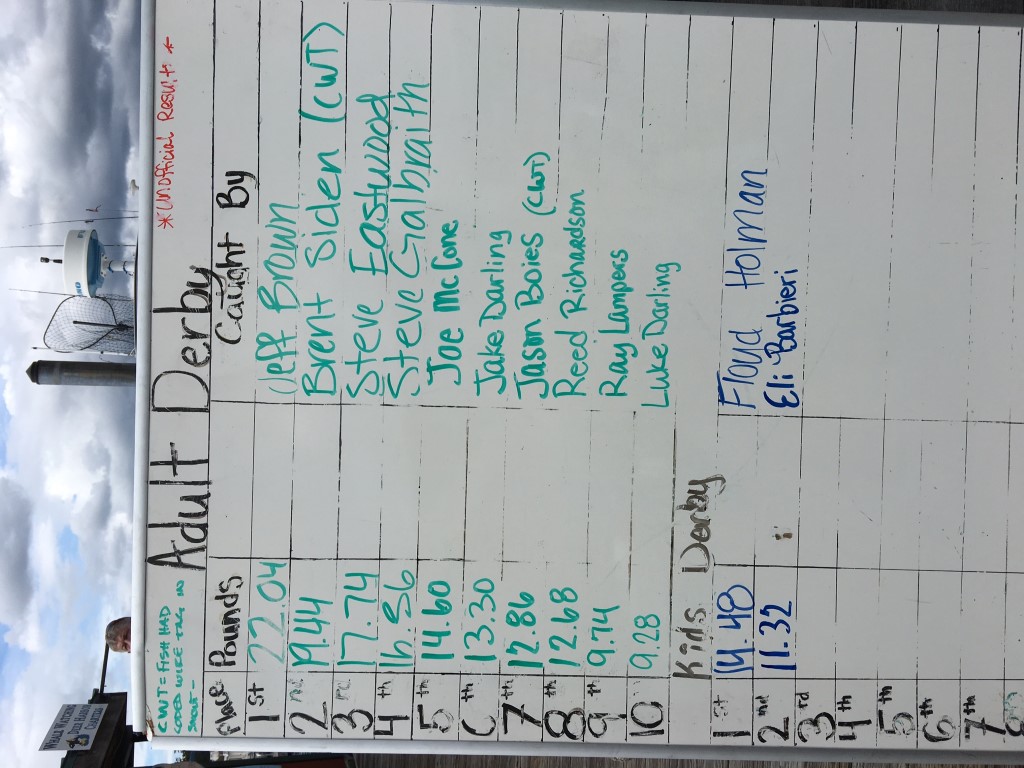 *Unofficial Results*
CWT = FISH HAD
CODED WIRE TAG IN
SNOUT-
Adult Derby
Place Pounds Caught By
1st 22.04 Jeff Brown
2nd 19.44 Brent Siden (CWT)
3rd 17.74 Steve Eastwood
4th 16.56 Steve Galbraith
5th 14.60 Joe McCone
6th 13.30 Jake Darling
7th 12.86 Jason Boies (CWT)
8th 12.68 Reed Richardson
9th 9.74 Ray Lampers
10 9.28 Luke Darling
Kids Derby
1st 14.48 Floyd Holman
2nd 11.32 Eli Barbieri
3rd
4th
5th
6th
7th